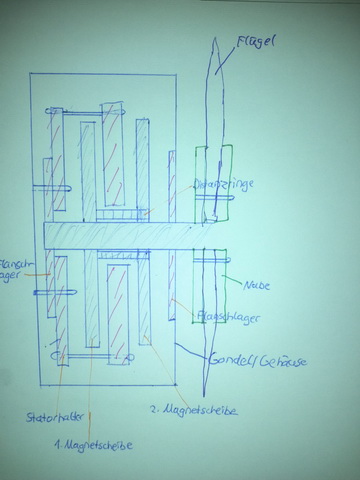 Flügel
Distanzringe
Flansch-
lager
Nabe
Flanschlager
Gondel/Gehäuse
Statorhalter
2. Magnetscheibe
1. Magnetscheibe